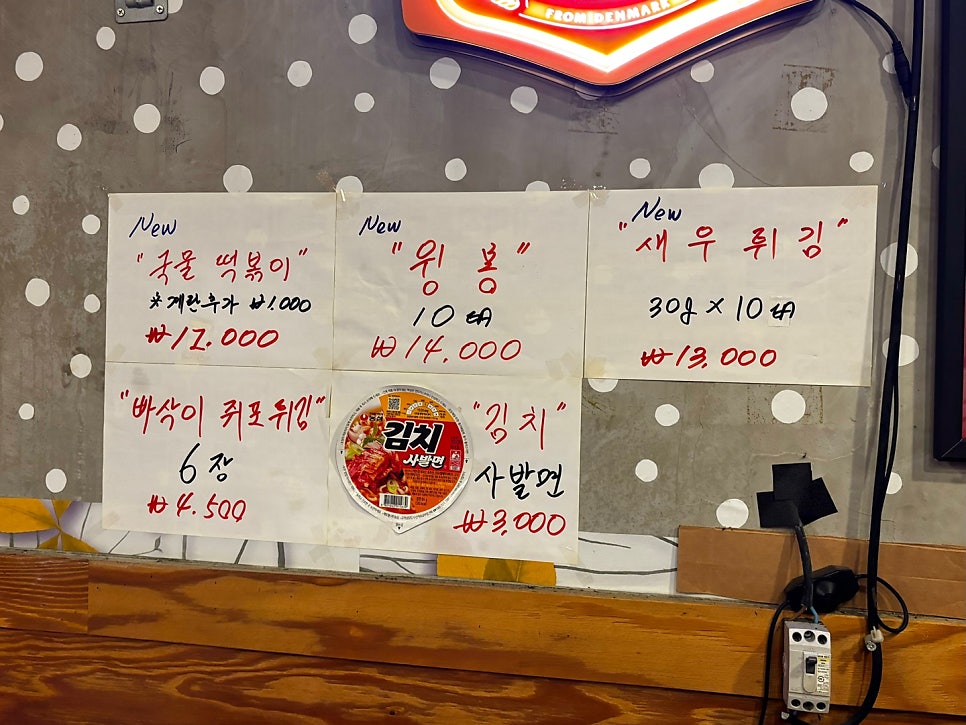 FROM DENMARK
New
"국물 떡볶이"
※계란추가 ₩1.000
₩12.000
New
"윙 봉"
10 pcs
₩14,000
New
"새우 튀김"
30g × 10 pcs
₩13,000
"바삭이 쥐포튀김"
6장
₩4.500
김치
사발면
"김치"
사발면
₩3,000